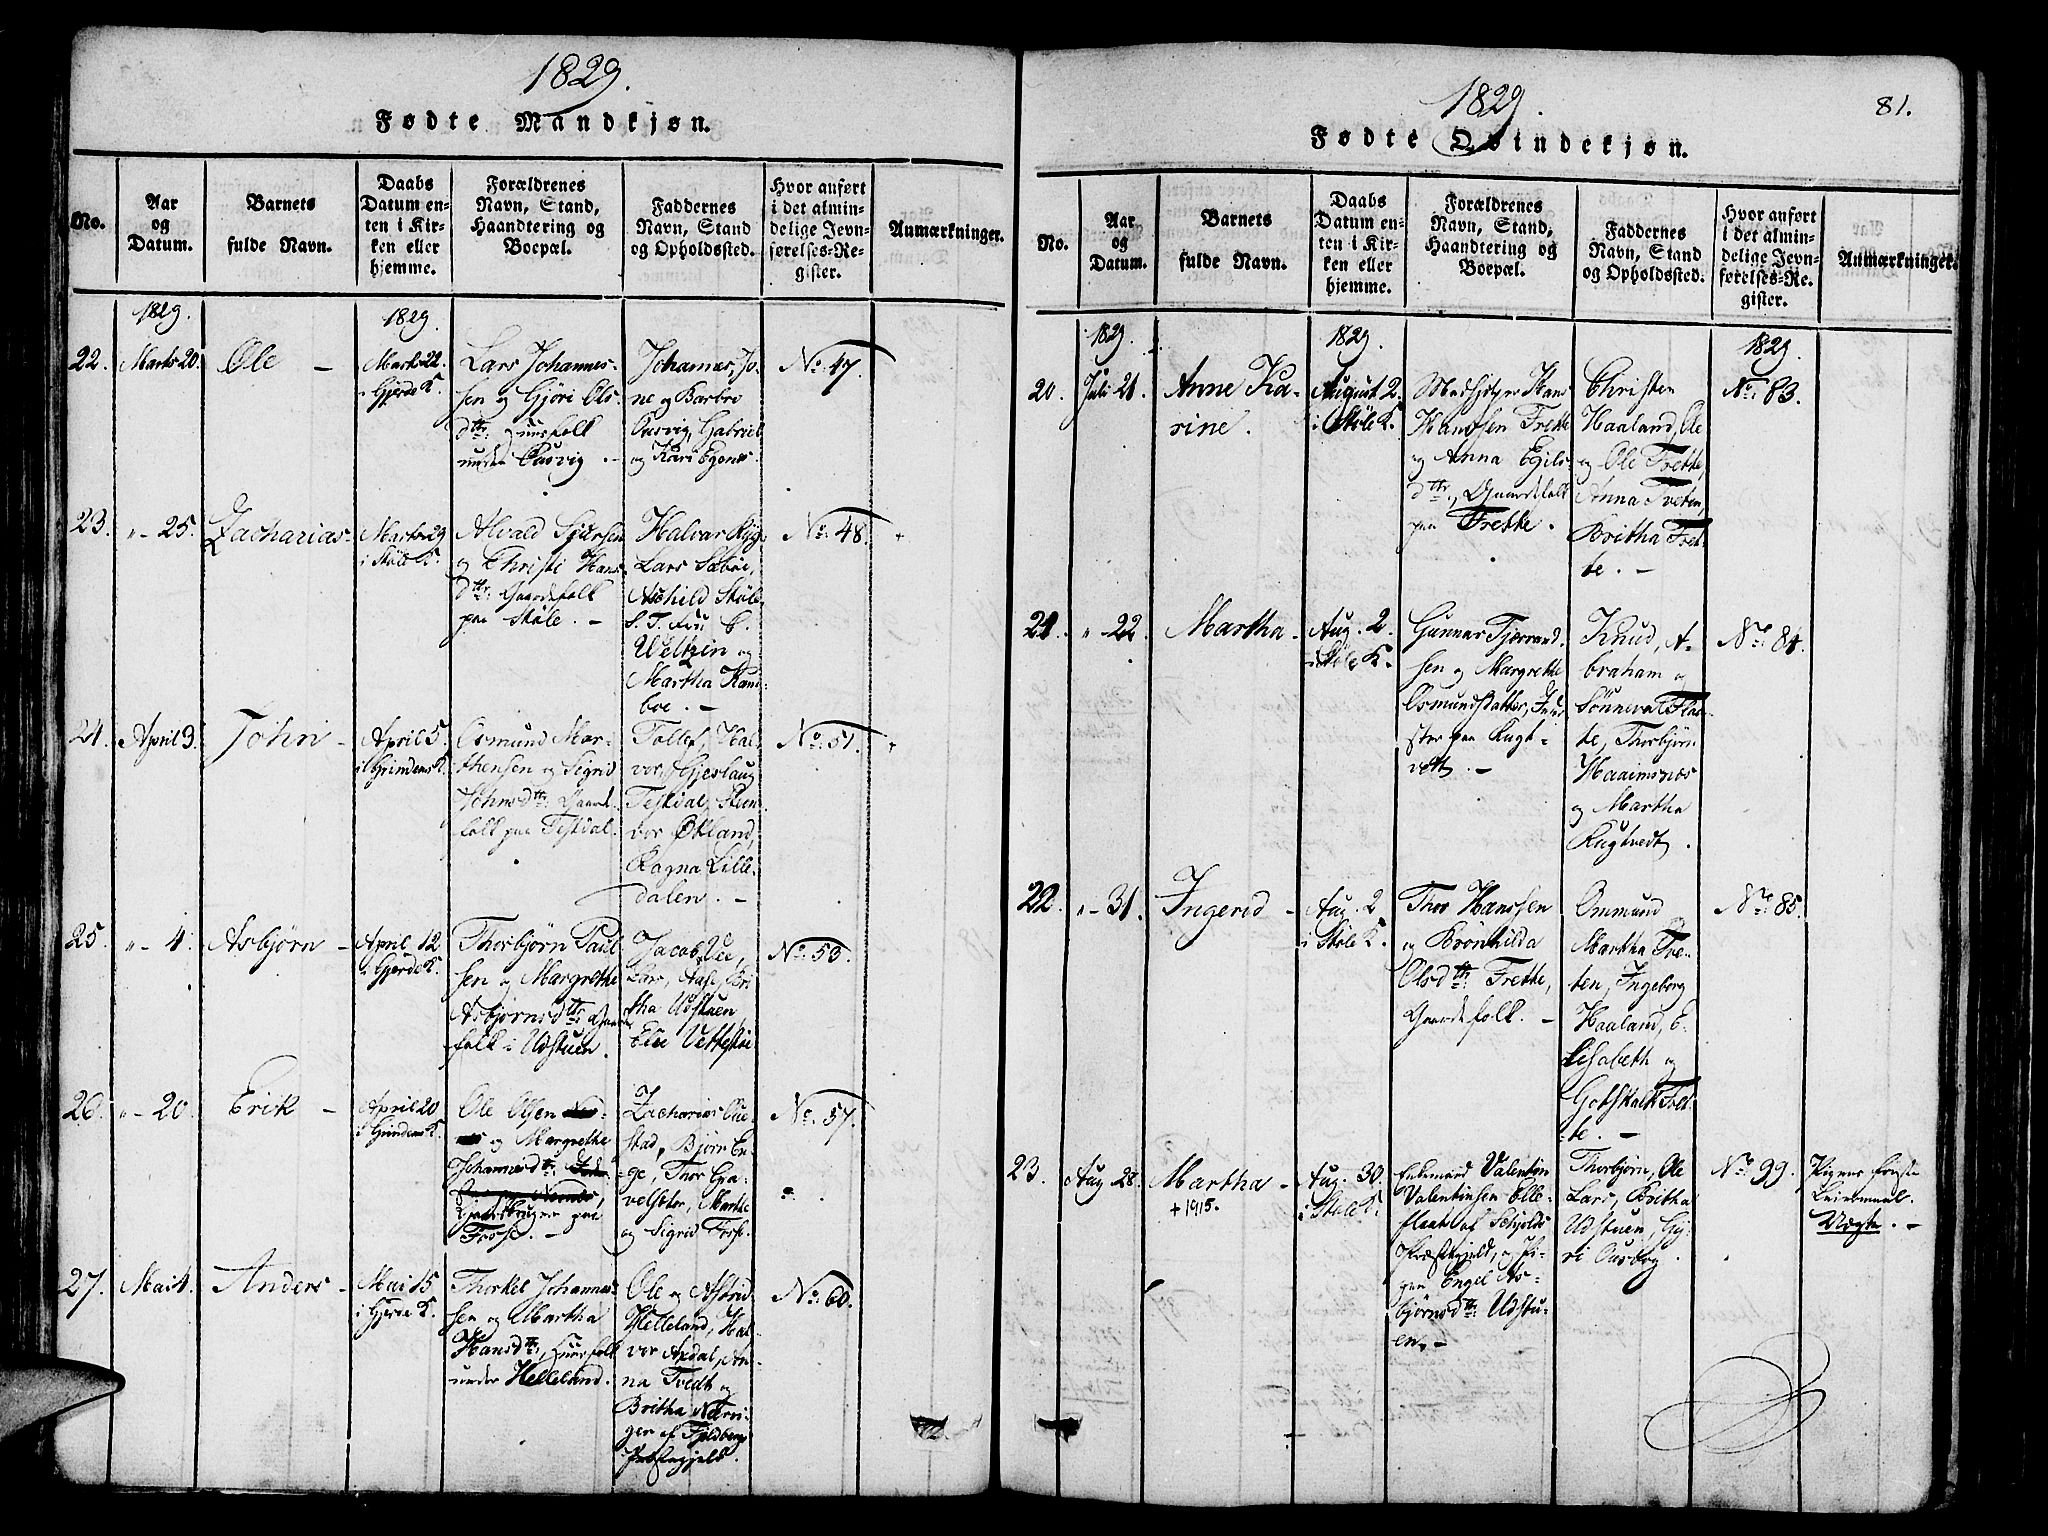 1829.
Fødte Mandkjøn.
No.
Aar
og
Datum.
Barnets
fulde Navn.
Daabs
Datum en-
ten i Kir-
ken eller
hjemme.
Forældrenes
Navn, Stand,
Haandtering og
Boepæl.
Faddernes
Navn, Stand
og Opholdssted.
Hvor anført
i det almin-
delige Jevn-
førelses-Re-
gister.
Anmærkninger.
1829.
1829.
22.
Marts 20.
Ole –
Marts 22.
i Gjerde K.
Lars Johannes-
sen og Gjøri Ols-
dtr: Huusfolk
under
Johannes, Jo-
ne og Barbro
Gabriel
og Kari
No. 47.
23.
"– 25.
Zacharias –
Marts 29
i Støle K.
Alvald Sjursen
og Christi Hans-
dtr: Gaardefolk
paa Støle. –
Halvar
Lars Sæbøe,
Aschild Støle
S. T. Fru C.
Weltzin og
Martha Rand-
boe. –
No. 48.
24.
April 3.
John –
April 5.
i Grindens K.
Osmund Mor-
thensen og Sigrid
Johnsdtr: Gaard-
folk paa
Tollef, Hal-
vor, Gjeslaug
Steen-
vor Økland,
Ragna Lille-
dalen. –
No. 51.
25.
"– 4.
Asbjørn –
April 12
i Gjerde K.
Thorbjørn Paul-
sen og Margrethe
Asbjørnsdtr: Gaard-
folk i Udstuen.
Jacob Øe,
Lars, Aase, Bri-
tha Udstuen,
No. 53.
26.
"– 20.
Erik –
April 20
i Grindens K.
Ole Olsen
og Margrethe
Johannesdtr:
Gaardbruger paa
Fosse. –
Zacharias Øve-
stad, Bjørn En-
ge, Thor Gra-
velseter, Marthe
og Sigrid Fosse.
No. 57.
27.
Mai 4.
Anders –
Mai 15
i Gjerde K.
Thorkel Johannes-
sen og Martha
Hansdtr, Huusfolk
under Helleland.
Ole og Astrid
Helleland, Hal-
vor Axdal, An-
na Tvedt og
Britha Nærvi-
gen af Fjeldbergs
Præstegjeld.
No. 60.
1829.
81.
Fødte Qvindekjøn.
No.
Aar
og
Datum.
Barnets
fulde Navn.
Daabs
Datum en-
ten i Kir-
ken eller
hjemme.
Forældrenes
Navn, Stand,
Haandtering og
Boepæl.
Faddernes
Navn, Stand
og Opholdssted.
Hvor anført
i det almin-
delige Jevn-
førelses-Re-
gister.
Anmærkninger.
1829.
1829.
1829.
20.
Juli 21.
Anne Ka-
rine.
August 2.
i Støle K.
Medhjelper Hans
Hanssen Frette
og Anna Egils-
dtr, Gaardefolk
paa Frette.
Christen
Haaland, Ole
og Ole Frette,
Anna Tveten,
Britha Fret-
te. –
No. 83.
21.
"– 22.
Martha –
Aug. 2.
i Støle K.
Gunnar Tjerrand-
sen og Margrethe
Osmundsdatter, Inder-
ster paa Rugt-
vett. –
Knud, A-
braham og
Sønneva Flaa-
te, Thorbjørn
Haaimsnæs
og Martha
Rugtvedt.
No. 84.
22.
"– 31.
Ingerid –
Aug. 2
i Støle K.
Thor Hanssen
og Brønhilda
Olsdtr: Frette,
Gaardefolk. –
Ommund og
Martha Tve-
ten, Ingeborg
Haaland, E-
lisabeth og
Gotskalk Fret-
te. –
No. 85.
23.
Aug. 28.
Martha –
+ 1915.
Aug. 30.
i Støle K.
Enkemand Valentin
Valentinsen Elle-
flaat af Schjolds
Præstegjeld, og Pi-
gen Engel As-
bjørnsdtr: Udstu-
en. –
Thorbjørn, Ole
Lars, Britha
Udstuen, Gjø-
ri
No. 99.
Pigens første
Leiermaal.
Uægte. –